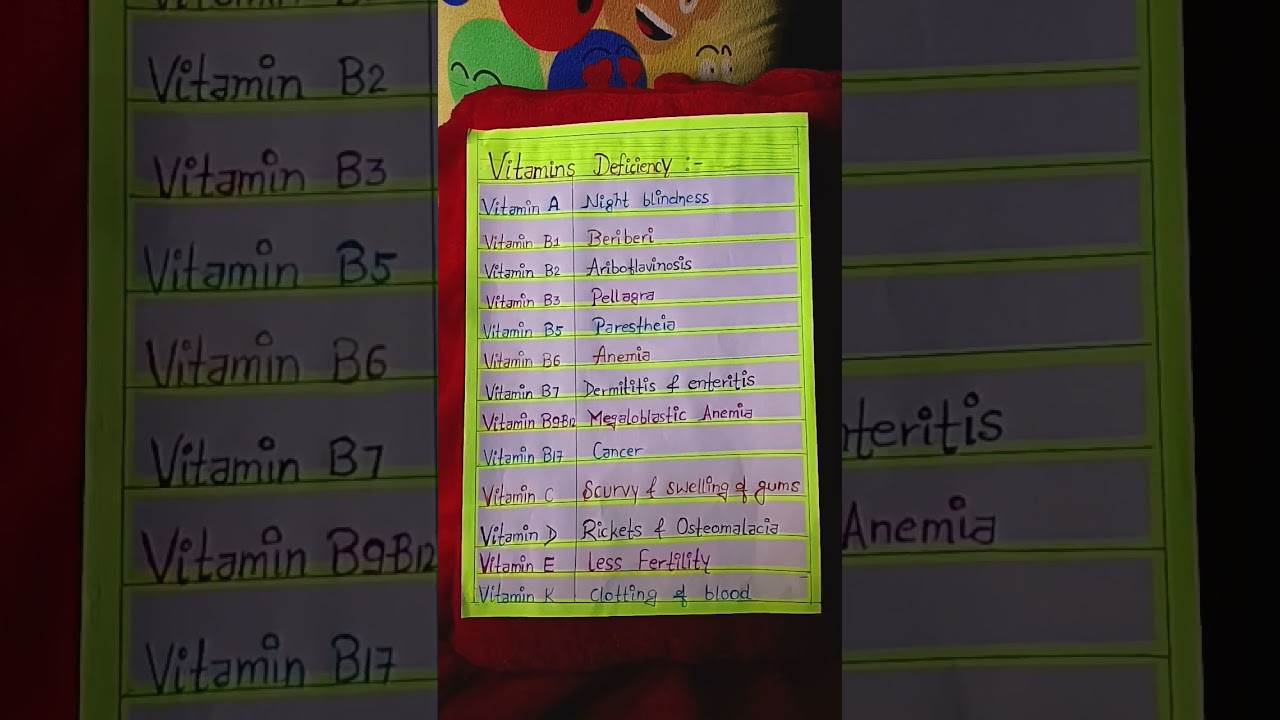 Vitamin B2
Vitamin B3
Vitamin B5
Vitamin B6
Vitamin B7
Vitamin B9-B12
Vitamin B17
Vitamins Deficiency :-
Vitamin A Night blindness
Vitamin B1 Beriberi
Vitamin B2 Ariboflavinosis
Vitamin B3 Pellagra
Vitamin B5 Parestheia
Vitamin B6 Anemia
Vitamin B7 Dermititis & enteritis
Vitamin B9-B12 Megaloblastic Anemia
Vitamin B17 Cancer
Vitamin C Scurvy & swelling of gums
Vitamin D Rickets & Osteomalacia
Vitamin E Less Fertility
Vitamin K Clotting of blood
nteritis
Anemia